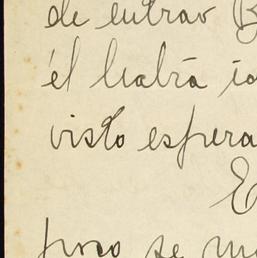 de entrar
él habrá
visto espera
E
poco se